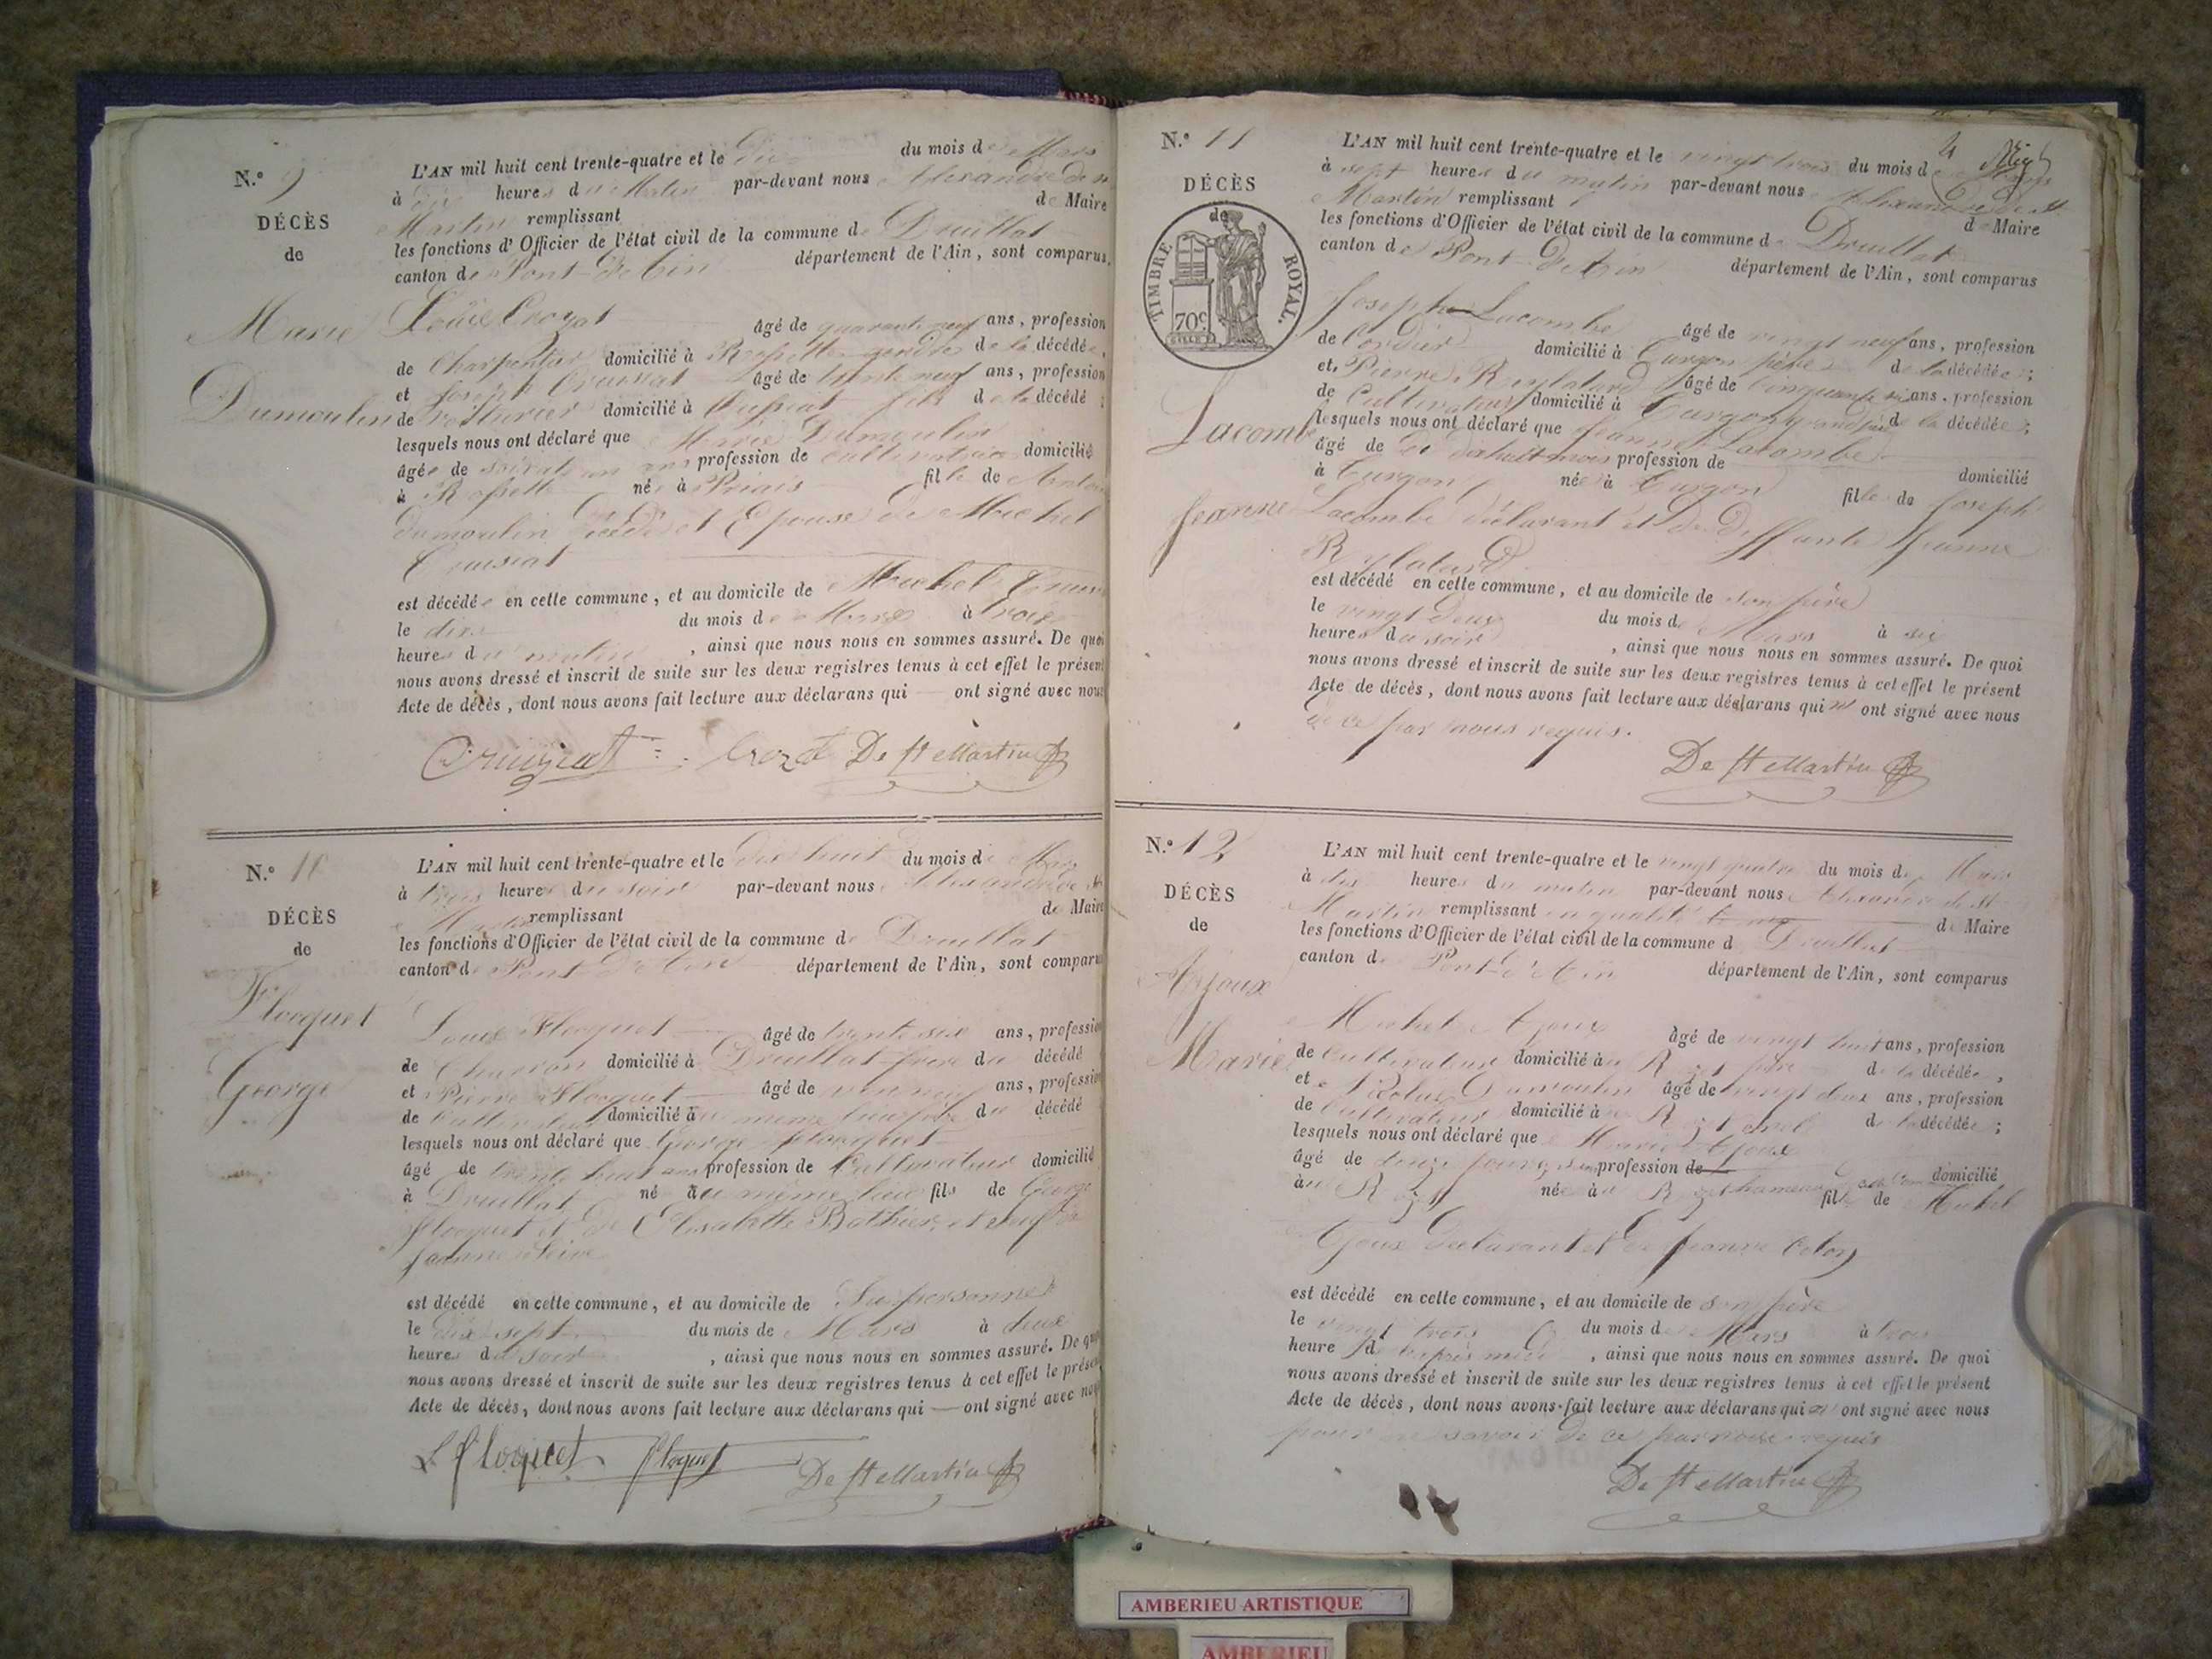 N.° 9
DÉCÈS
de
Marie
Dumoulin
L'AN mil huit cent trente-quatre et le dix du mois de Mars
à dix heures du Matin par-devant nous Alexandre de
Martin remplissant de Maire
les fonctions d'Officier de l'état civil de la commune de Druillat
canton de Pont-d'Ain département de l'Ain, sont comparus
Louis Crozat âgé de quarante neuf ans, profession
de Charpentier domicilié à Rossettes gendre de la décédée,
et Joseph Cruisiat âgé de trente neuf ans, profession
de Voiturier domicilié à fils de la décédé ;
lesquels nous ont déclaré que Marie Dumoulin
âgée de soixante un ans profession de cultivatrice domicilié
à née à Priais fille de
Dumoulin décédé et Epouse de Michel
Cruisiat
est décédée en cette commune, et au domicile de Michel
le dix du mois de Mars à trois
heures du matin, ainsi que nous nous en sommes assuré. De quoi
nous avons dressé et inscrit de suite sur les deux registres tenus à cet effet le présent
Acte de décès, dont nous avons fait lecture aux déclarans qui ont signé avec nous
Cruisiat Crozat De St Martin
N.° 10
DÉCÈS
de
Floquet
George
L'AN mil huit cent trente-quatre et le dix huit du mois de Mars
à trois heures du soir par-devant nous Alexandre de St
Martin remplissant de Maire
les fonctions d'Officier de l'état civil de la commune de Druillat
canton de Pont d'Ain département de l'Ain, sont comparu
Louis Floquet âgé de trente six ans, profession
de Charron domicilié à Druillat frère du décédé
et Pierre Floquet âgé de ans, profession
de Cultivateur domicilié au même lieu du décédé
lesquels nous ont déclaré que George Floquet
âgé de trente huit ans profession de Cultivateur domicilié
à Druillat né au même lieu fils de George
Floquet et de Elisabeth Bathier, et veuf de
Jeanne
est décédé en cette commune, et au domicile de Sa personne
le dix sept du mois de Mars à deux
heures du soir, ainsi que nous nous en sommes assuré. De quoi
nous avons dressé et inscrit de suite sur les deux registres tenus à cet effet le présent
Acte de décès, dont nous avons fait lecture aux déclarans qui ont signé avec nous
L floquet floquet De St Martin
4
N.° 11
DÉCÈS
de
TIMBRE ROYAL.
70c
Lacombe
Jeanne
L'AN mil huit cent trente-quatre et le vingt trois du mois de Mars
à sept heures du matin par-devant nous Alexandre de St
Martin remplissant de Maire
les fonctions d'Officier de l'état civil de la commune de Druillat
canton de Pont-d'Ain département de l'Ain, sont comparus
Joseph Lacombe âgé de vingt neuf ans, profession
de Cordier domicilié à Turgon père de la décédée ;
et Pierre Reylatard âgé de cinquante six ans, profession
de Cultivateur domicilié à Turgon grand père de la décédée ;
lesquels nous ont déclaré que Jeanne Lacombe
âgé de dixhuit mois profession de domicilié
à Turgon née à Turgon fille de Joseph
Lacombe déclarant et de Deffunte Jeanne
Reylatard
est décédé en cette commune, et au domicile de son père
le vingt deux du mois de Mars à six
heures du soir, ainsi que nous nous en sommes assuré. De quoi
nous avons dressé et inscrit de suite sur les deux registres tenus à cet effet le présent
Acte de décès, dont nous avons fait lecture aux déclarans qui n' ont signé avec nous
de ce par nous requis.
De St Martin
N.° 12
DÉCÈS
de
Ajoux
Marie
L'AN mil huit cent trente-quatre et le vingt quatre du mois de Mars
à dix heures du matin par-devant nous Alexandre de St
Martin remplissant en qualité de Maire
les fonctions d'Officier de l'état civil de la commune d Druillat
canton de Pont d'Ain département de l'Ain, sont comparus
Michel Ajoux âgé de vingt huit ans, profession
de Cultivateur domicilié au père de la décédée,
et Dumoulin âgé de vingt deux ans, profession
de Cultivateur domicilié au de la décédée ;
lesquels nous ont déclaré que Marie Ajoux
âgé de profession de domicilié
au née au hameau fille de Michel
Ajoux Déclarant et de Jeanne
est décédé en cette commune, et au domicile de son père
le vingt trois du mois de Mars à trois
heure d après midi, ainsi que nous nous en sommes assuré. De quoi
nous avons dressé et inscrit de suite sur les deux registres tenus à cet effet le présent
Acte de décès, dont nous avons fait lecture aux déclarans qui n' ont signé avec nous
pour ne savoir de ce par nous requis
De St Martin
AMBERIEU ARTISTIQUE
AMBERIEU